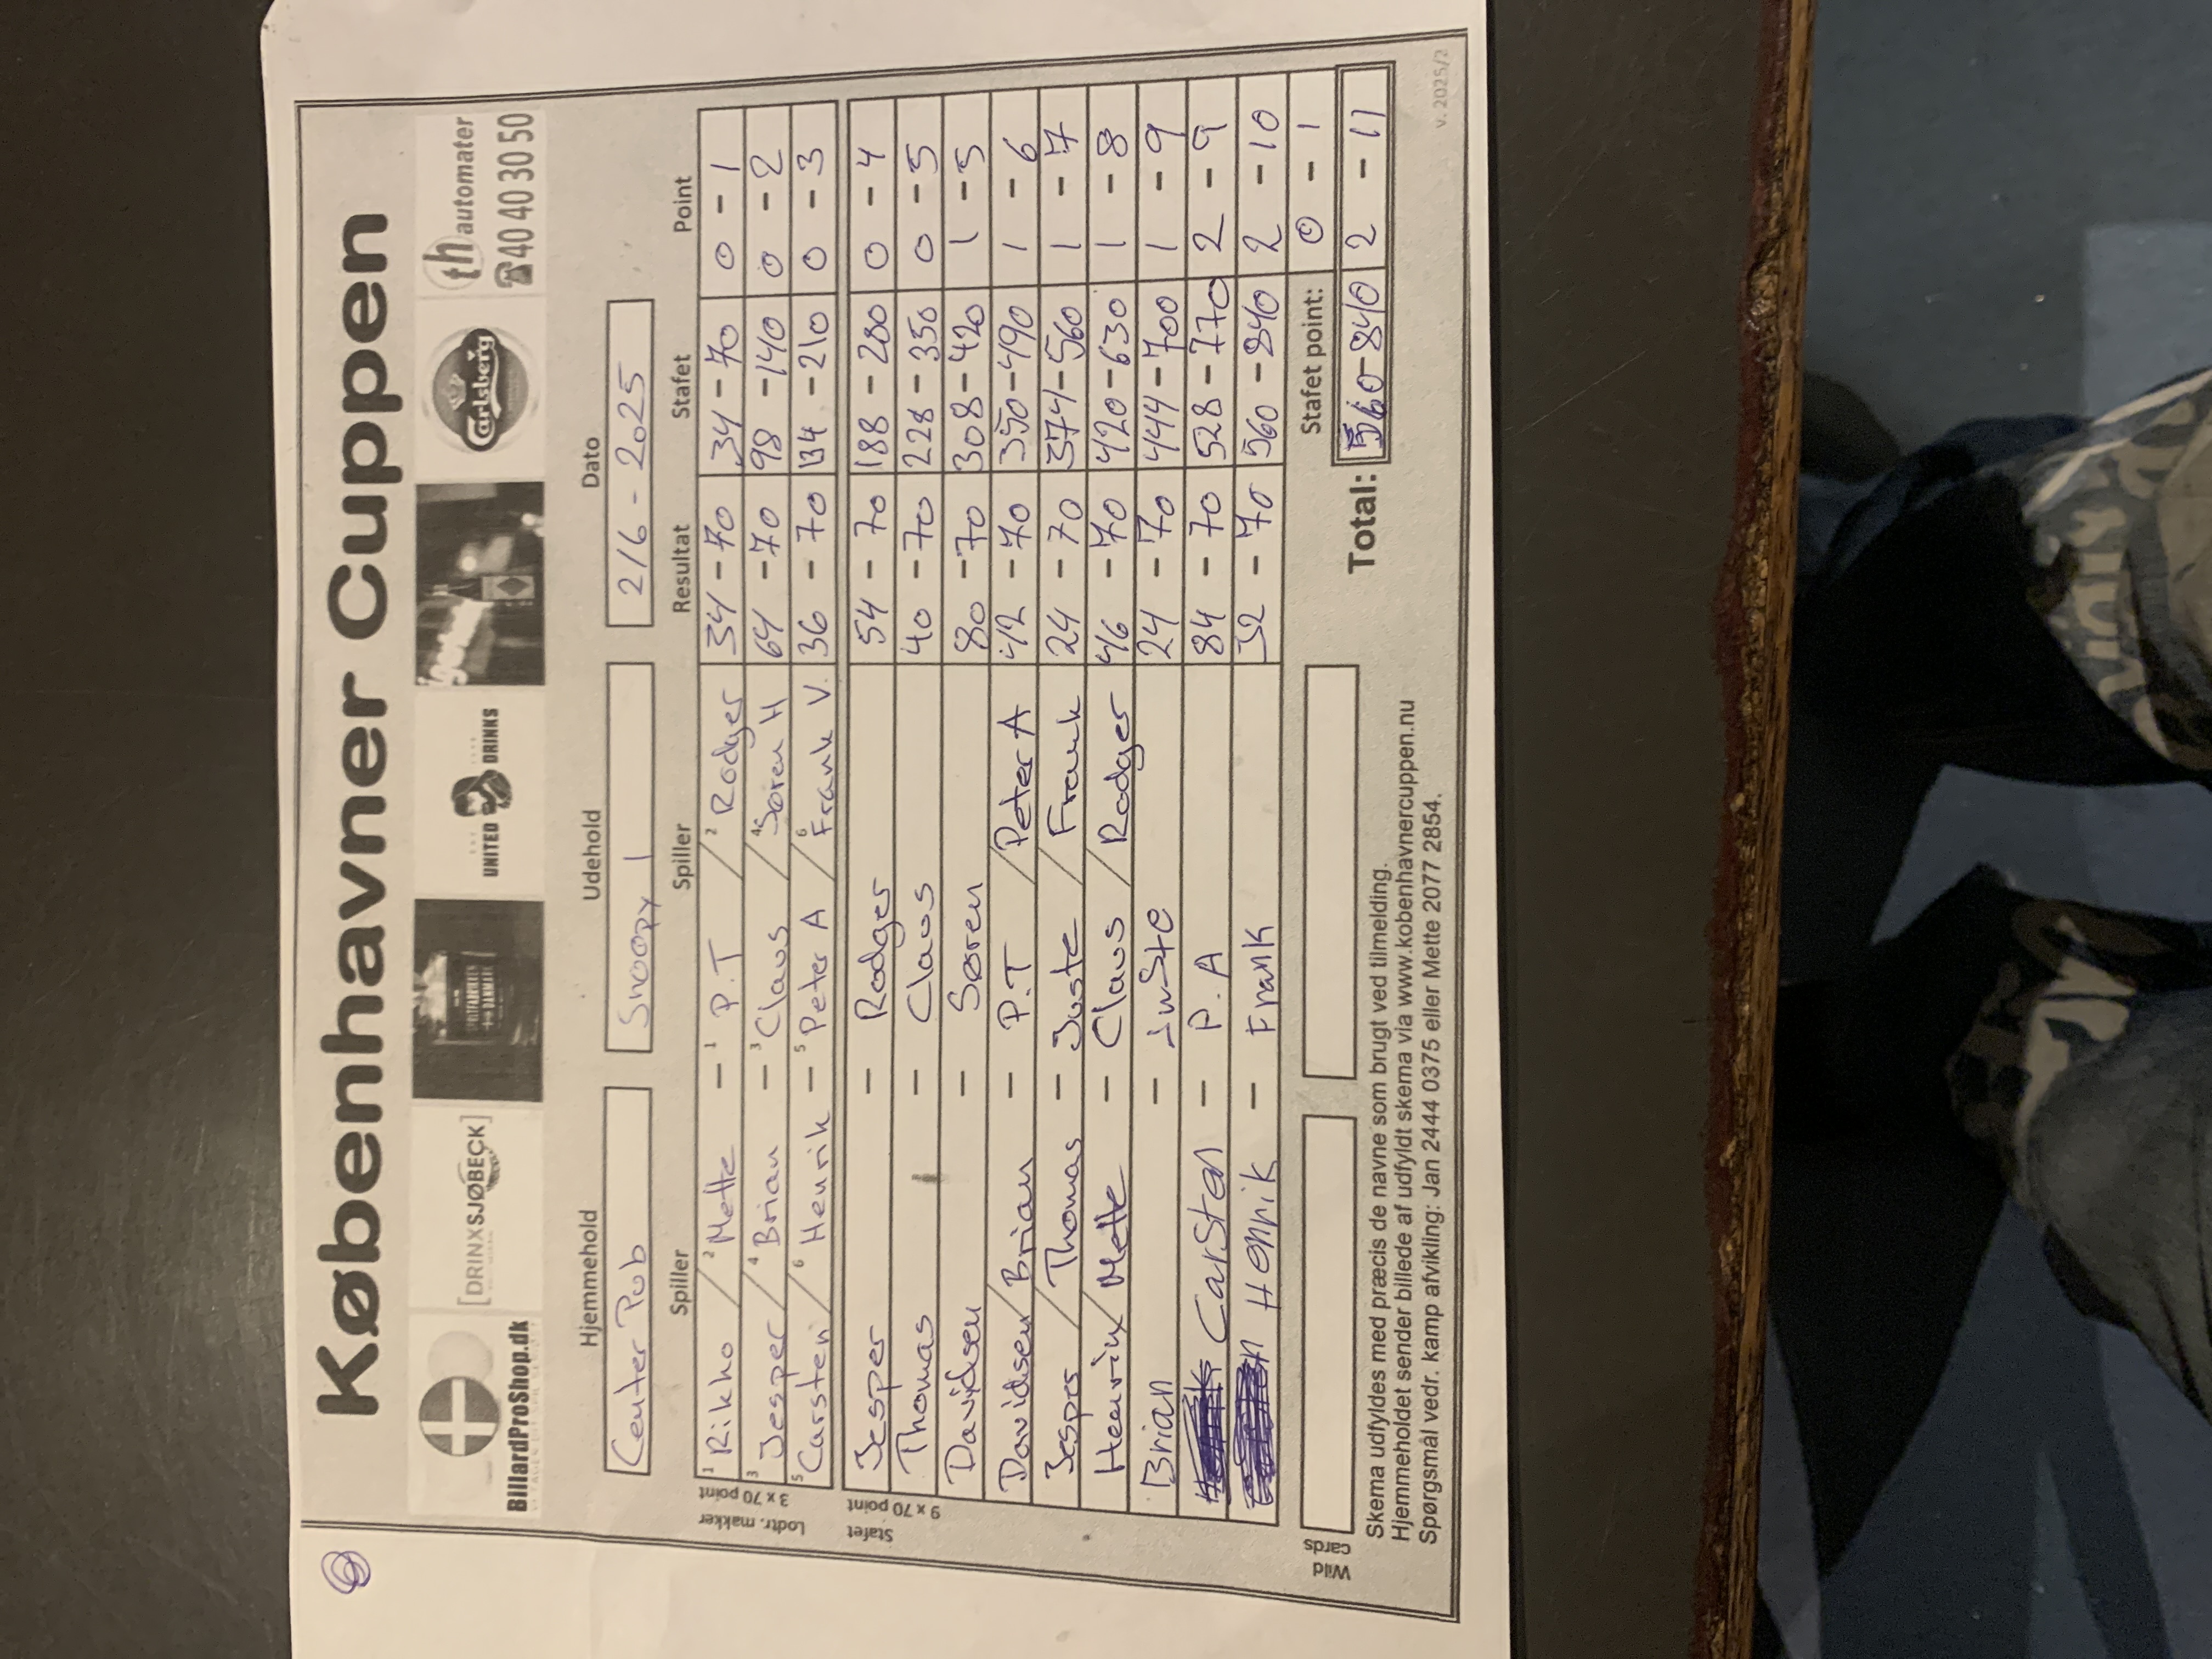 Københavner Cuppen
BilliardProShop.dk
[DRINXSJØBECK]
UNITED DRINKS
Carlsberg
th automater
☎40 40 30 50
Hjemmehold Udehold Dato
Center Pub Snoopy 1 2/6 - 2025
Spiller Spiller Resultat Stafet Point
Lodtr. makker 3 x 70 point
1 Rikho / 2 Mette - 1 P.T / 2 Rodger 34 - 70 34 - 70 0 - 1
3 Jesper / 4 Brian - 3 Claus / 4 Søren H 64 - 70 98 - 140 0 - 2
5 Carsten / 6 Henrik - 5 Peter A / 6 Frank V. 36 - 70 134 - 210 0 - 3
Stafet 9 x 70 point
Jesper - Rodger 54 - 70 188 - 280 0 - 4
Thomas - Claus 40 - 70 228 - 350 0 - 5
Davidsen - Søren 80 - 70 308 - 420 1 - 5
Davidsen / Brian - P.T / Peter A 42 - 70 350 - 490 1 - 6
Jesper / Thomas - Juste / Frank 24 - 70 374 - 560 1 - 7
Henrik / Mette - Claus / Rodger 46 - 70 420 - 630 1 - 8
Brian - Juste 24 - 70 444 - 700 1 - 9
Carsten - P.A 84 - 70 528 - 770 2 - 9
Henrik - Frank 32 - 70 560 - 840 2 - 10
Wild cards Stafet point: 0 - 1
Total: 560 - 840 2 - 11
Skema udfyldes med præcis de navne som brugt ved tilmelding.
Hjemmeholdet sender billede af udfyldt skema via www.kobenhavnercuppen.nu
Spørgsmål vedr. kamp afvikling: Jan 2444 0375 eller Mette 2077 2854.
v. 2025/2